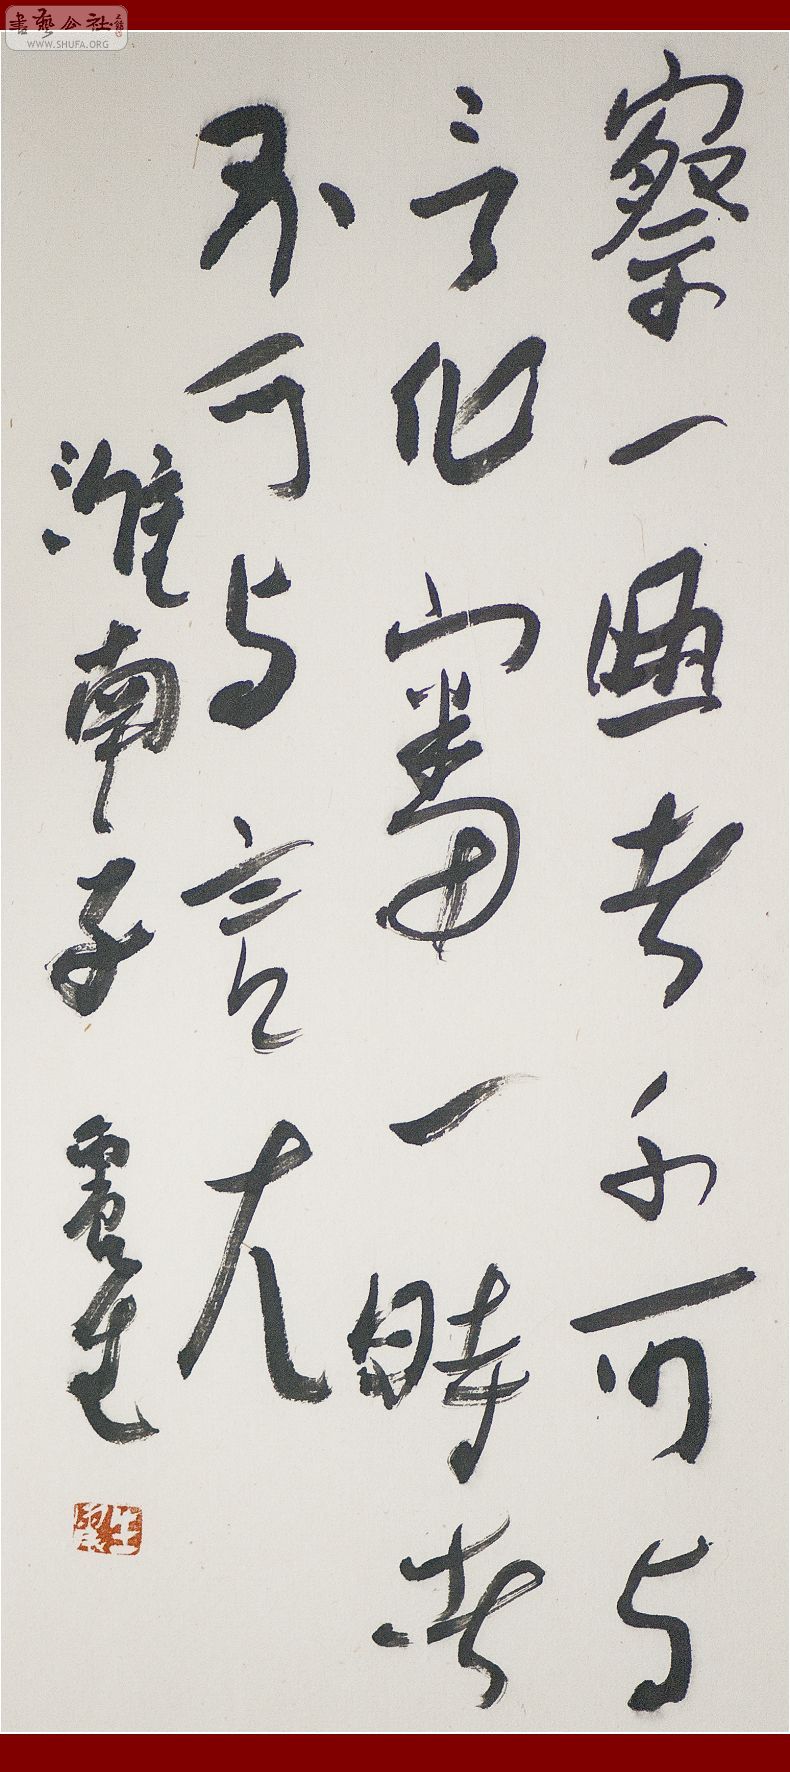 察一曲者不可与
言化审一時者
不可与言大
淮南子 雲生
書藝公社
WWW.SHUFA.ORG